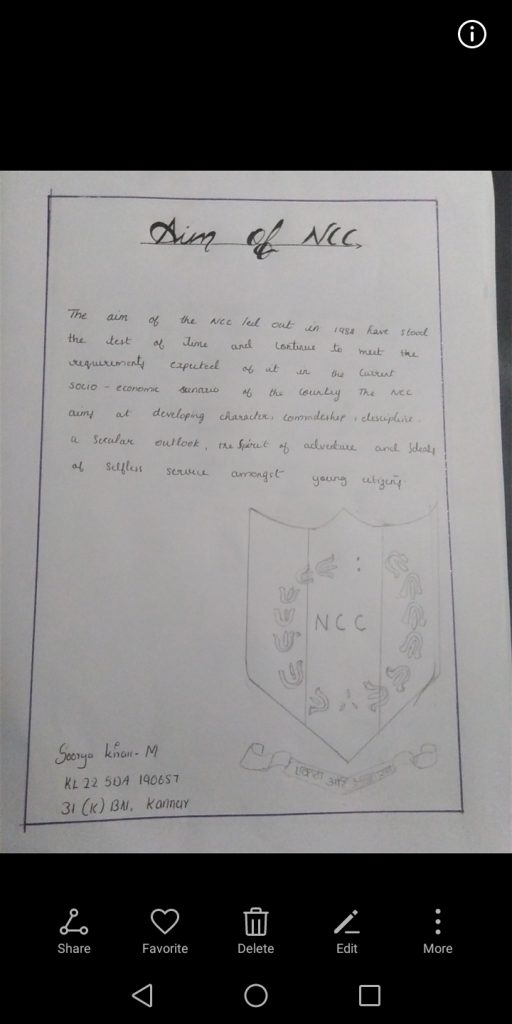 Aim of NCC
The aim of the NCC led out in 1988 have stood
the test of Time and continue to meet the
requirements expected of at in the current
socio - economic scenario of the country The NCC
aims at developing character, commadeship, discipline.
a secular outlook, the spirit of adventure and Ideals
of selfless service amongst young citizens.
NCC
एकता और
Sooryo Kiran. M
KL 22 SDA 190657
31 (K) BN, Kannur
Share
Favorite
Delete
Edit
More